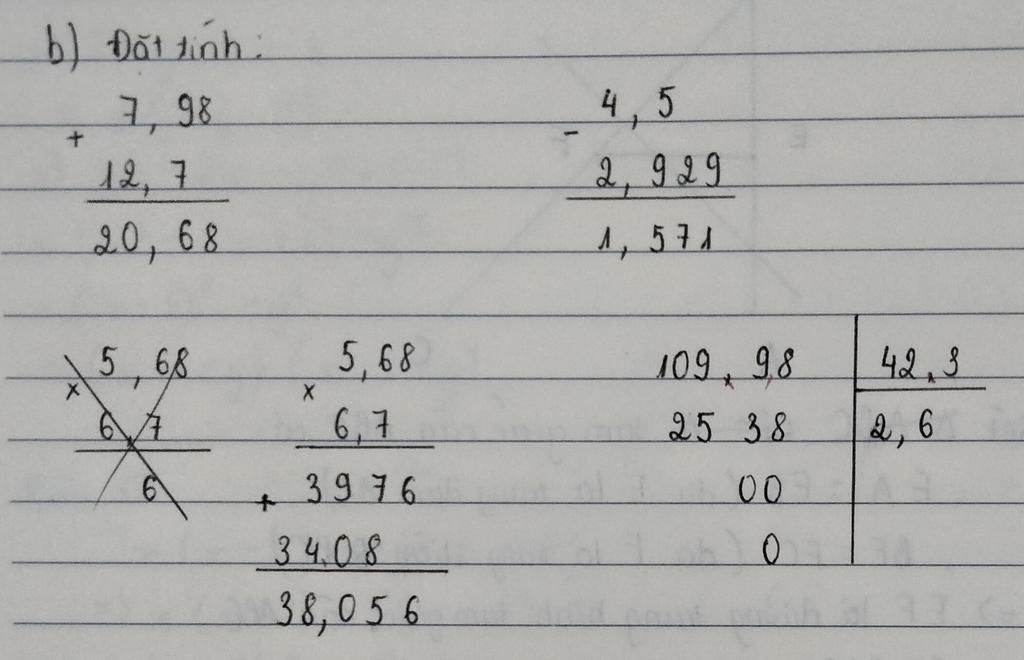 b) Đặt tính:
7,98
+
12,7
20,68
4,5
-
2,929
1,571
5,68
x
6,7
6
5,68
x
6,7
3976
+
3408
38,056
109,9,8 42,3
25 38 2,6
00
0